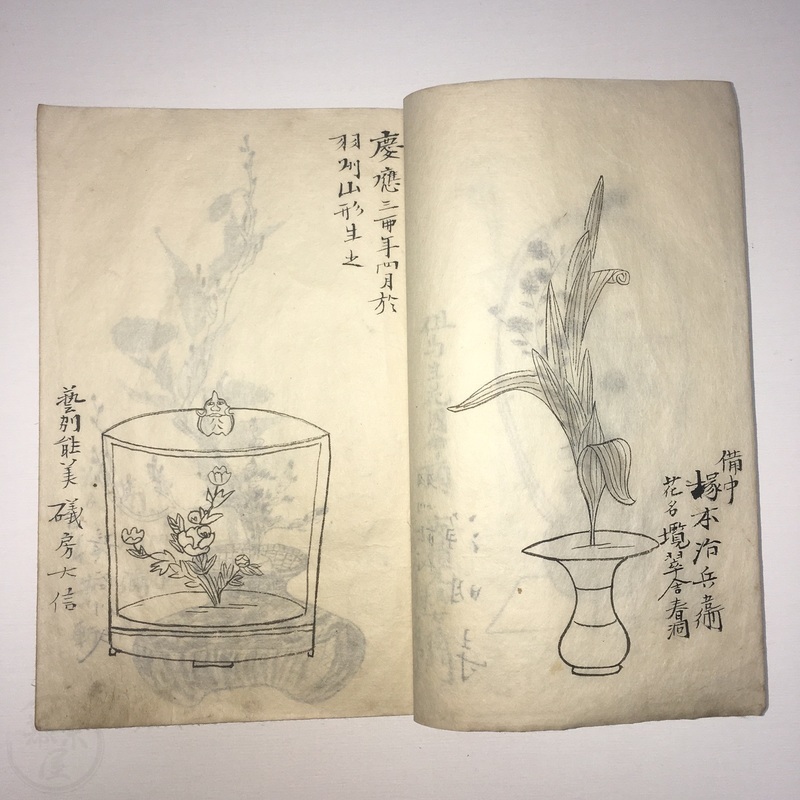 備中
塚本治兵衛
花名 攬翠舎春洞
慶應三 年四月於
羽州山形生之
藝州能美
礒房大信